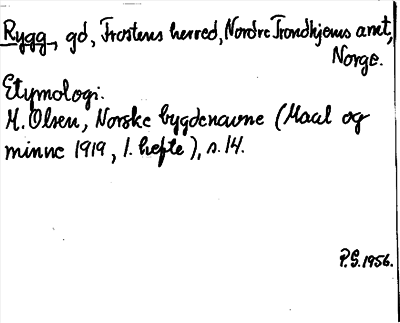 Rygg, gd, Frostens herred, Nordre Trondhjems amt,
Norge.
Etymologi.
M. Olsen, Norske bygdenavne (Maal og
minne 1919, 1. hefte), s. 14.
P.S. 1956.